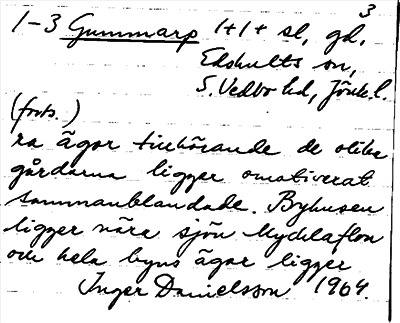 3
1-3 Gummarp 1+1+ sl, gd,
Edshults sn,
S. Vedbo hd, Jönk. l.
(forts.)
ra ägor tillhörande de olika
gårdarna ligger omotiverat
sammanblandade. Byhusen
ligger nära sjön Mycklaflon
och hela byns ägor ligger
Inger Danielsson 1964.